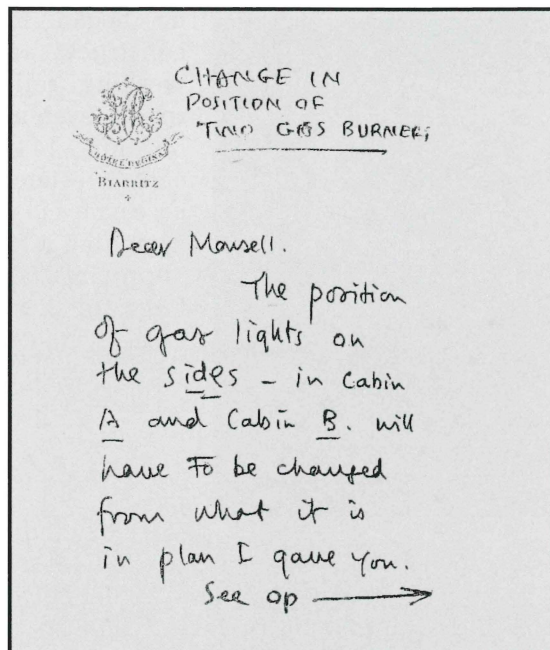 CHANGE IN
POSITION OF
TWO GAS BURNERS
BIARRITZ
Dear Mansell.
The position
of gas lights on
the sides – in Cabin
A and Cabin B. will
have To be changed
from what it is
in plan I gave you.
See op →